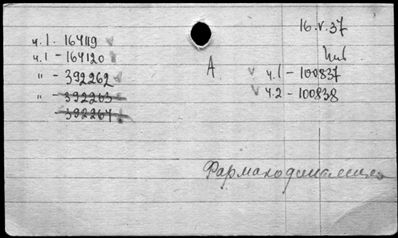 16.V.37
ч.1 - 164119
ч.1 - 164120
A
ч.1 - 100837
" - 392262
ч.2 - 100838
" - 392263
- 392264